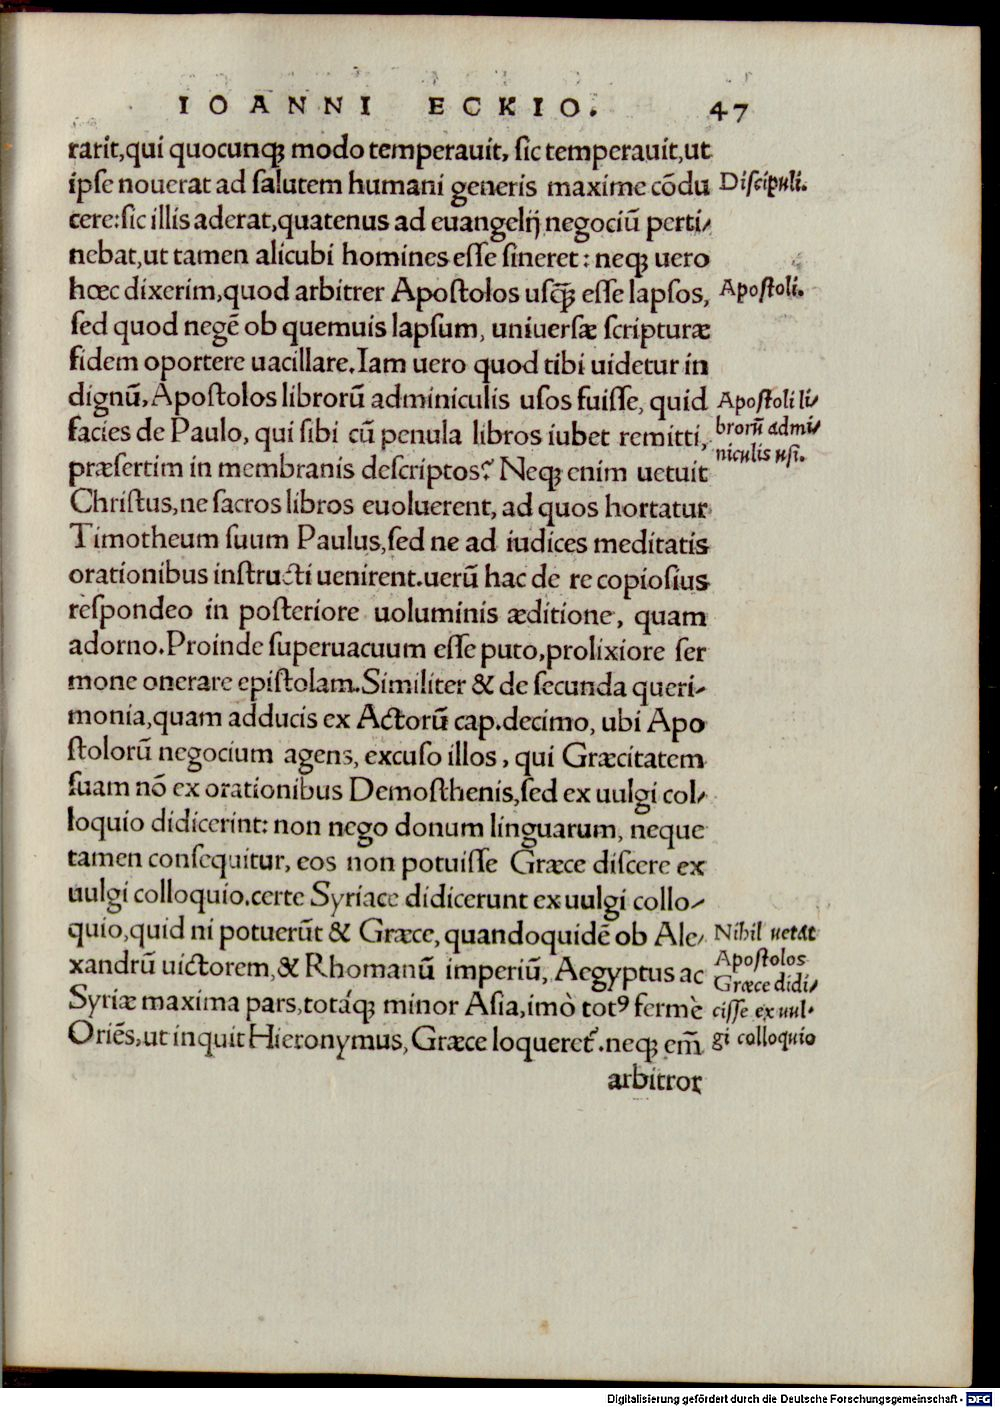 IOANNI ECKIO. 47
rarit,qui quocunqꝫ modo temperauit, sic temperauit,ut
ipse nouerat ad salutem humani generis maxime cōdu
cere:sic illis aderat,quatenus ad euangelij negociū perti/
nebat,ut tamen alicubi homines esse sineret: neqꝫ uero
hœc dixerim,quod arbitrer Apostolos usq̄ꝫ esse lapsos,
sed quod negē ob quemuis lapsum, uniuersæ scripturæ
fidem oportere uacillare.Iam uero quod tibi uidetur in
dignū,Apostolos librorū adminiculis usos fuisse, quid
facies de Paulo, qui sibi cū penula libros iubet remitti,
præsertim in membranis descriptos? Neqꝫ enim uetuit
Christus,ne sacros libros euoluerent, ad quos hortatur
Timotheum suum Paulus,sed ne ad iudices meditatis
orationibus instructi uenirent.uerū hac de re copiosius
respondeo in posteriore uoluminis æditione, quam
adorno.Proinde superuacuum esse puto,prolixiore ser
mone onerare epistolam.Similiter & de secunda queri/
monia,quam adducis ex Actorū cap.decimo, ubi Apo
stolorū negocium agens, excuso illos, qui Græcitatem
suam nō ex orationibus Demosthenis,sed ex uulgi col/
loquio didicerint: non nego donum linguarum, neque
tamen consequitur, eos non potuisse Græce discere ex
uulgi colloquio.certe Syriace didicerunt ex uulgi collo/
quio,quid ni potuerūt & Græce, quandoquidē ob Ale/
xandrū uictorem,& Rhomanū imperiū, Aegyptus ac
Syriæ maxima pars,totáqꝫ minor Asia,imò totꝰ fermè
Oriēs,ut inquit Hieronymus, Græce loqueret᷑.neqꝫ em̄
arbitror
Discipuli.
Apostoli.
Apostoli li/
brorū admi/
niculis usi.
Nihil uetat
Apostolos
Græce didi/
cisse ex uul/
gi colloquio
Digitalisierung gefördert durch die Deutsche Forschungsgemeinschaft - DFG